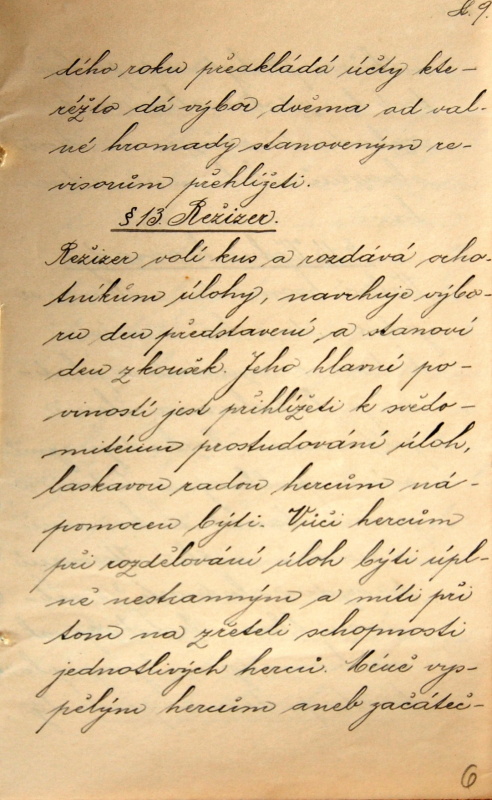 L. 9.
dého roku předkládá účty kte-
réžto dá výbor dvěma od val-
né hromady stanoveným re-
visorům přehlížeti.
§ 13. Režizer.
Režizer volí kus a rozdává ocho-
tníkům úlohy, navrhuje výbo-
ru den představení a stanoví
den zkoušek. Jeho hlavní po-
viností jest přihlížeti k svědo-
mitému prostudování úloh,
laskavou radou hercům ná-
pomocen býti. Vůči hercům
při rozdělování úloh býti úpl-
ně nestranným a míti při
tom na zřeteli schopnosti
jednotlivých herců. Méně vys-
pělým hercům aneb začáteč-
6